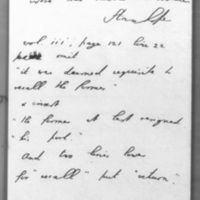 vol. iii. page 121 line 22
omit
"it was deemed requisite to
recall the former"
& insert
"the former at last resigned
his post"
And two lines lower
for "recall" put "return".